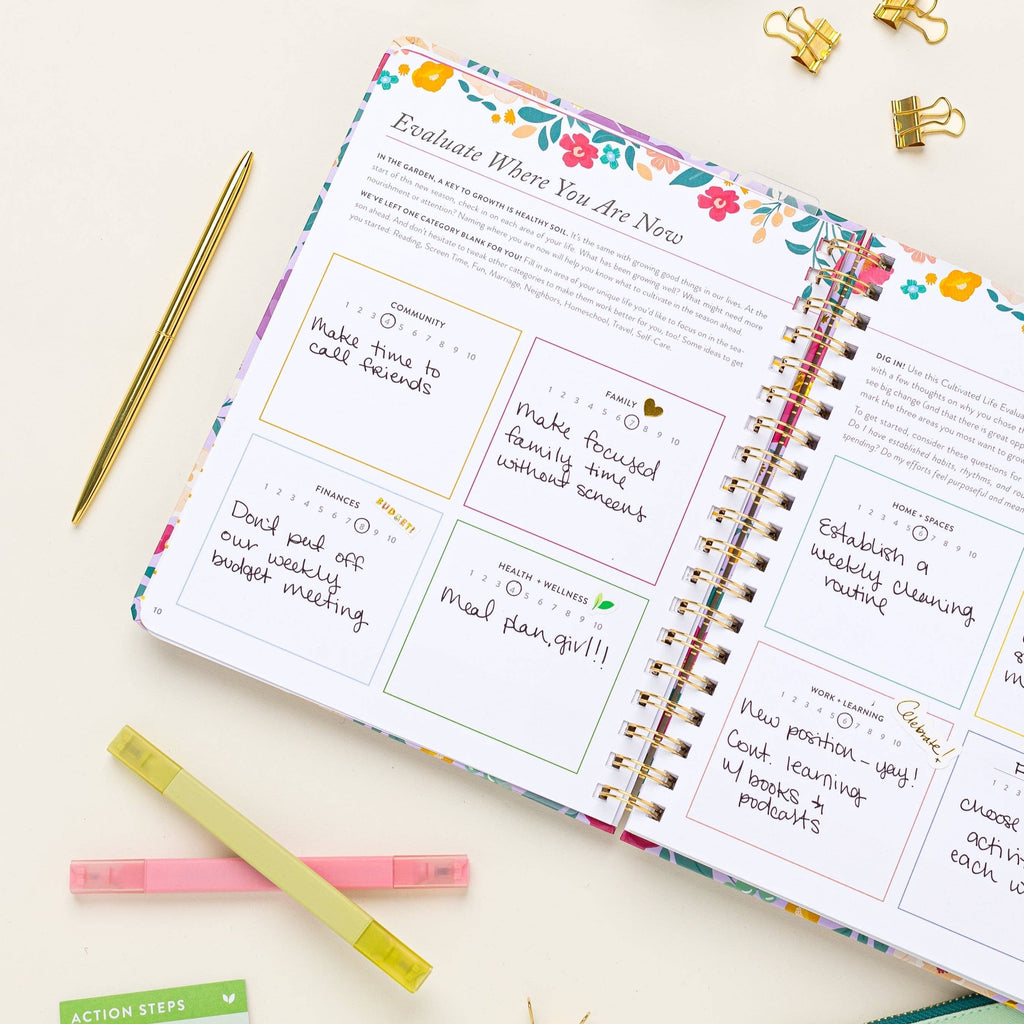 Evaluate Where You Are Now
IN THE GARDEN, A KEY TO GROWTH IS HEALTHY SOIL. It's the same with growing good things in our lives. At the
start of this new season, check in on each area of your life. What has been growing well? What might need more
nourishment or attention? Naming where you are now will help you know what to cultivate in the season ahead.
WE'VE LEFT ONE CATEGORY BLANK FOR YOU! Fill in an area of your unique life you'd like to focus on in the sea-
son ahead. And don't hesitate to tweak other categories to make them work better for you, too! Some ideas to get
you started: Reading, Screen Time, Fun, Marriage, Neighbors, Homeschool, Travel, Self-Care.
COMMUNITY
1 2 3 4 5 6 7 8 9 10
Make time to
call friends
FAMILY
1 2 3 4 5 6 7 8 9 10
Make focused
family time
without screens
FINANCES
BUDGET!
1 2 3 4 5 6 7 8 9 10
Don't put off
our weekly
budget meeting
HEALTH + WELLNESS
1 2 3 4 5 6 7 8 9 10
Meal plan, girl!!!
10
DIG IN! Use this Cultivated Life Evalua
with a few thoughts on why you chose th
see big change (and that there is great oppo
mark the three areas you most want to grow
To get started, consider these questions: For
Do I have established habits, rhythms, and rou
spending? Do my efforts feel purposeful and mean
HOME + SPACES
1 2 3 4 5 6 7 8 9 10
Establish a
weekly cleaning
routine
WORK + LEARNING
1 2 3 4 5 6 7 8 9 10
Celebrate!
New position - yay!
Cont. learning
w/ books &
podcasts
F
1 2 3
choose
activi
each w
ACTION STEPS